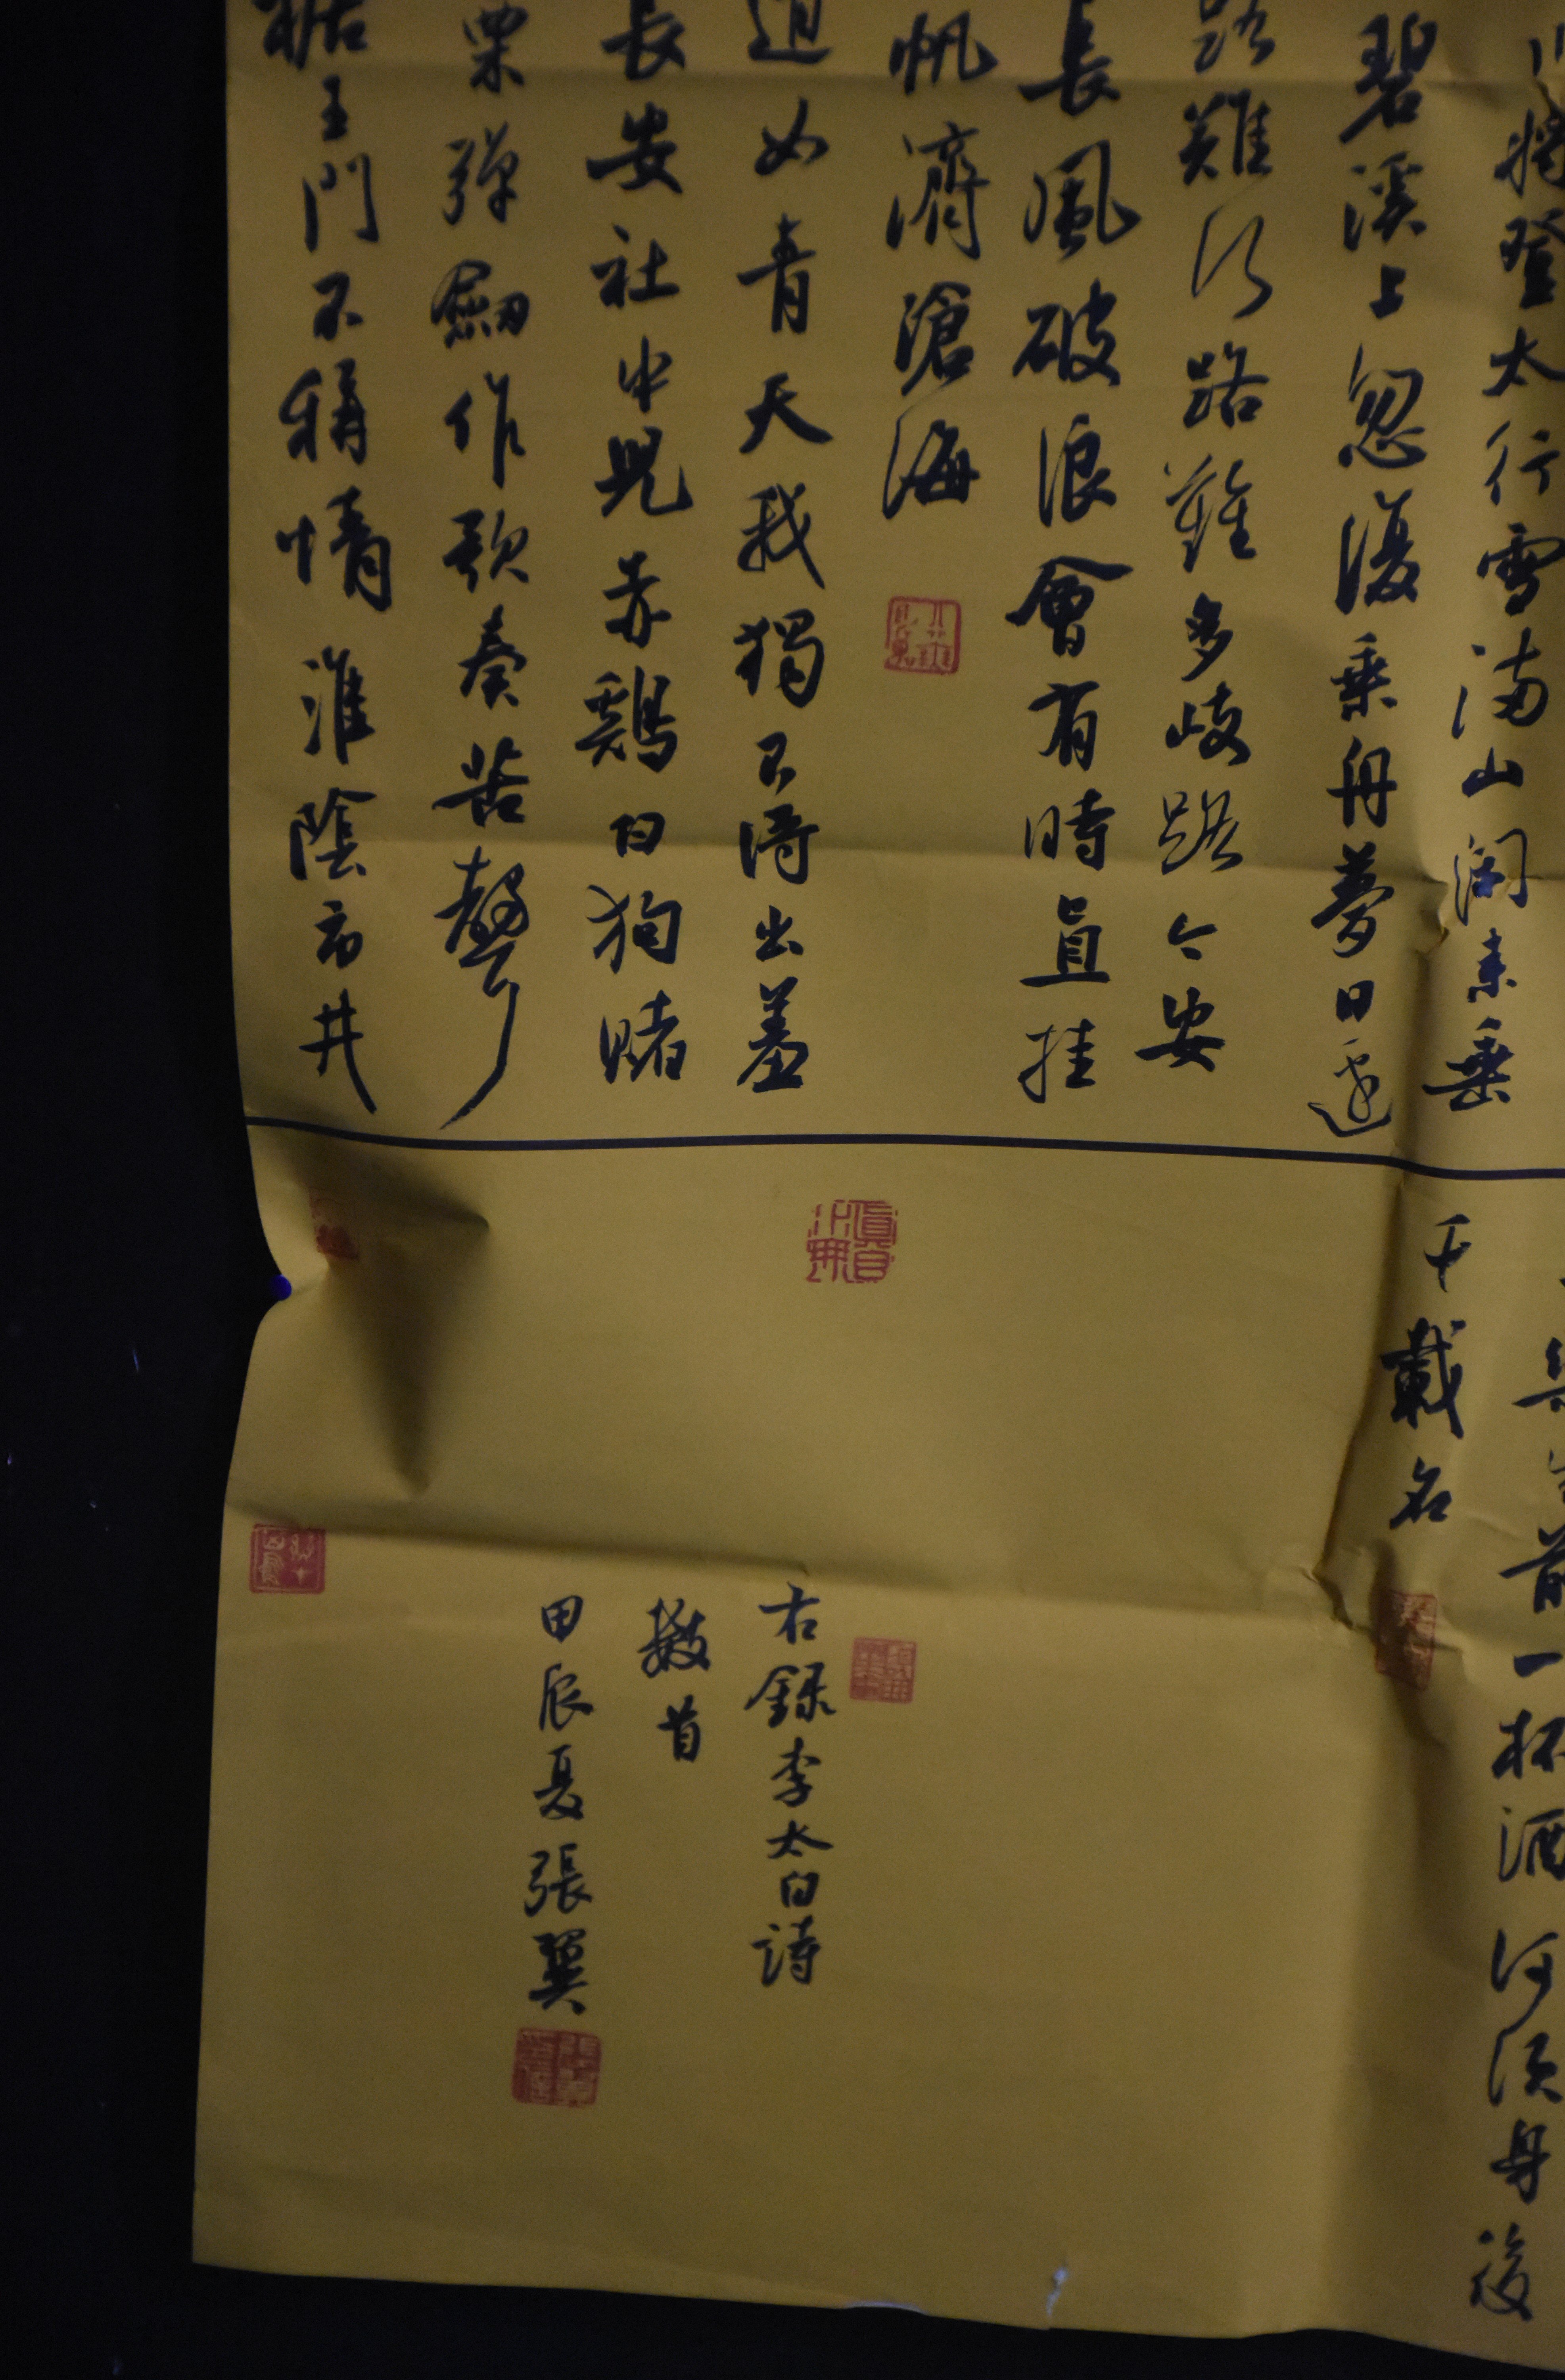 將登太行雪滿山閑來垂
碧溪上忽復乘舟夢日邊
路難行路難多歧路今安
長風破浪會有時直挂
帆濟滄海
道如青天我獨不得出羞
長安社中兒赤鷄白狗賭
粟彈劒作歌奏苦聲
裾王門不稱情淮陰市井
樂生前一杯酒何須身後
千載名
右錄李太白詩
數首
甲辰夏張巽